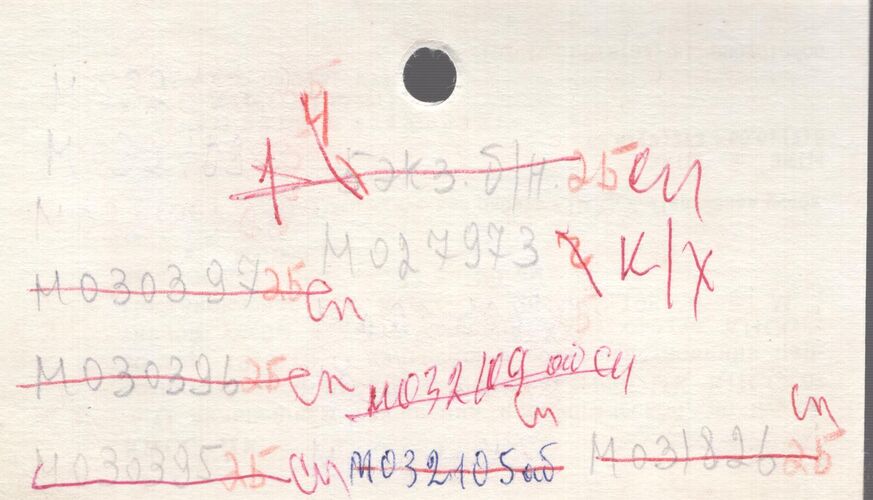 4
экз. б/н. 25 сп
М027973 к/х
М030397 25 сп
М030396 25 сп М032109 аб сп
сп сп
М030395 25 сп М032105 аб М031826 25